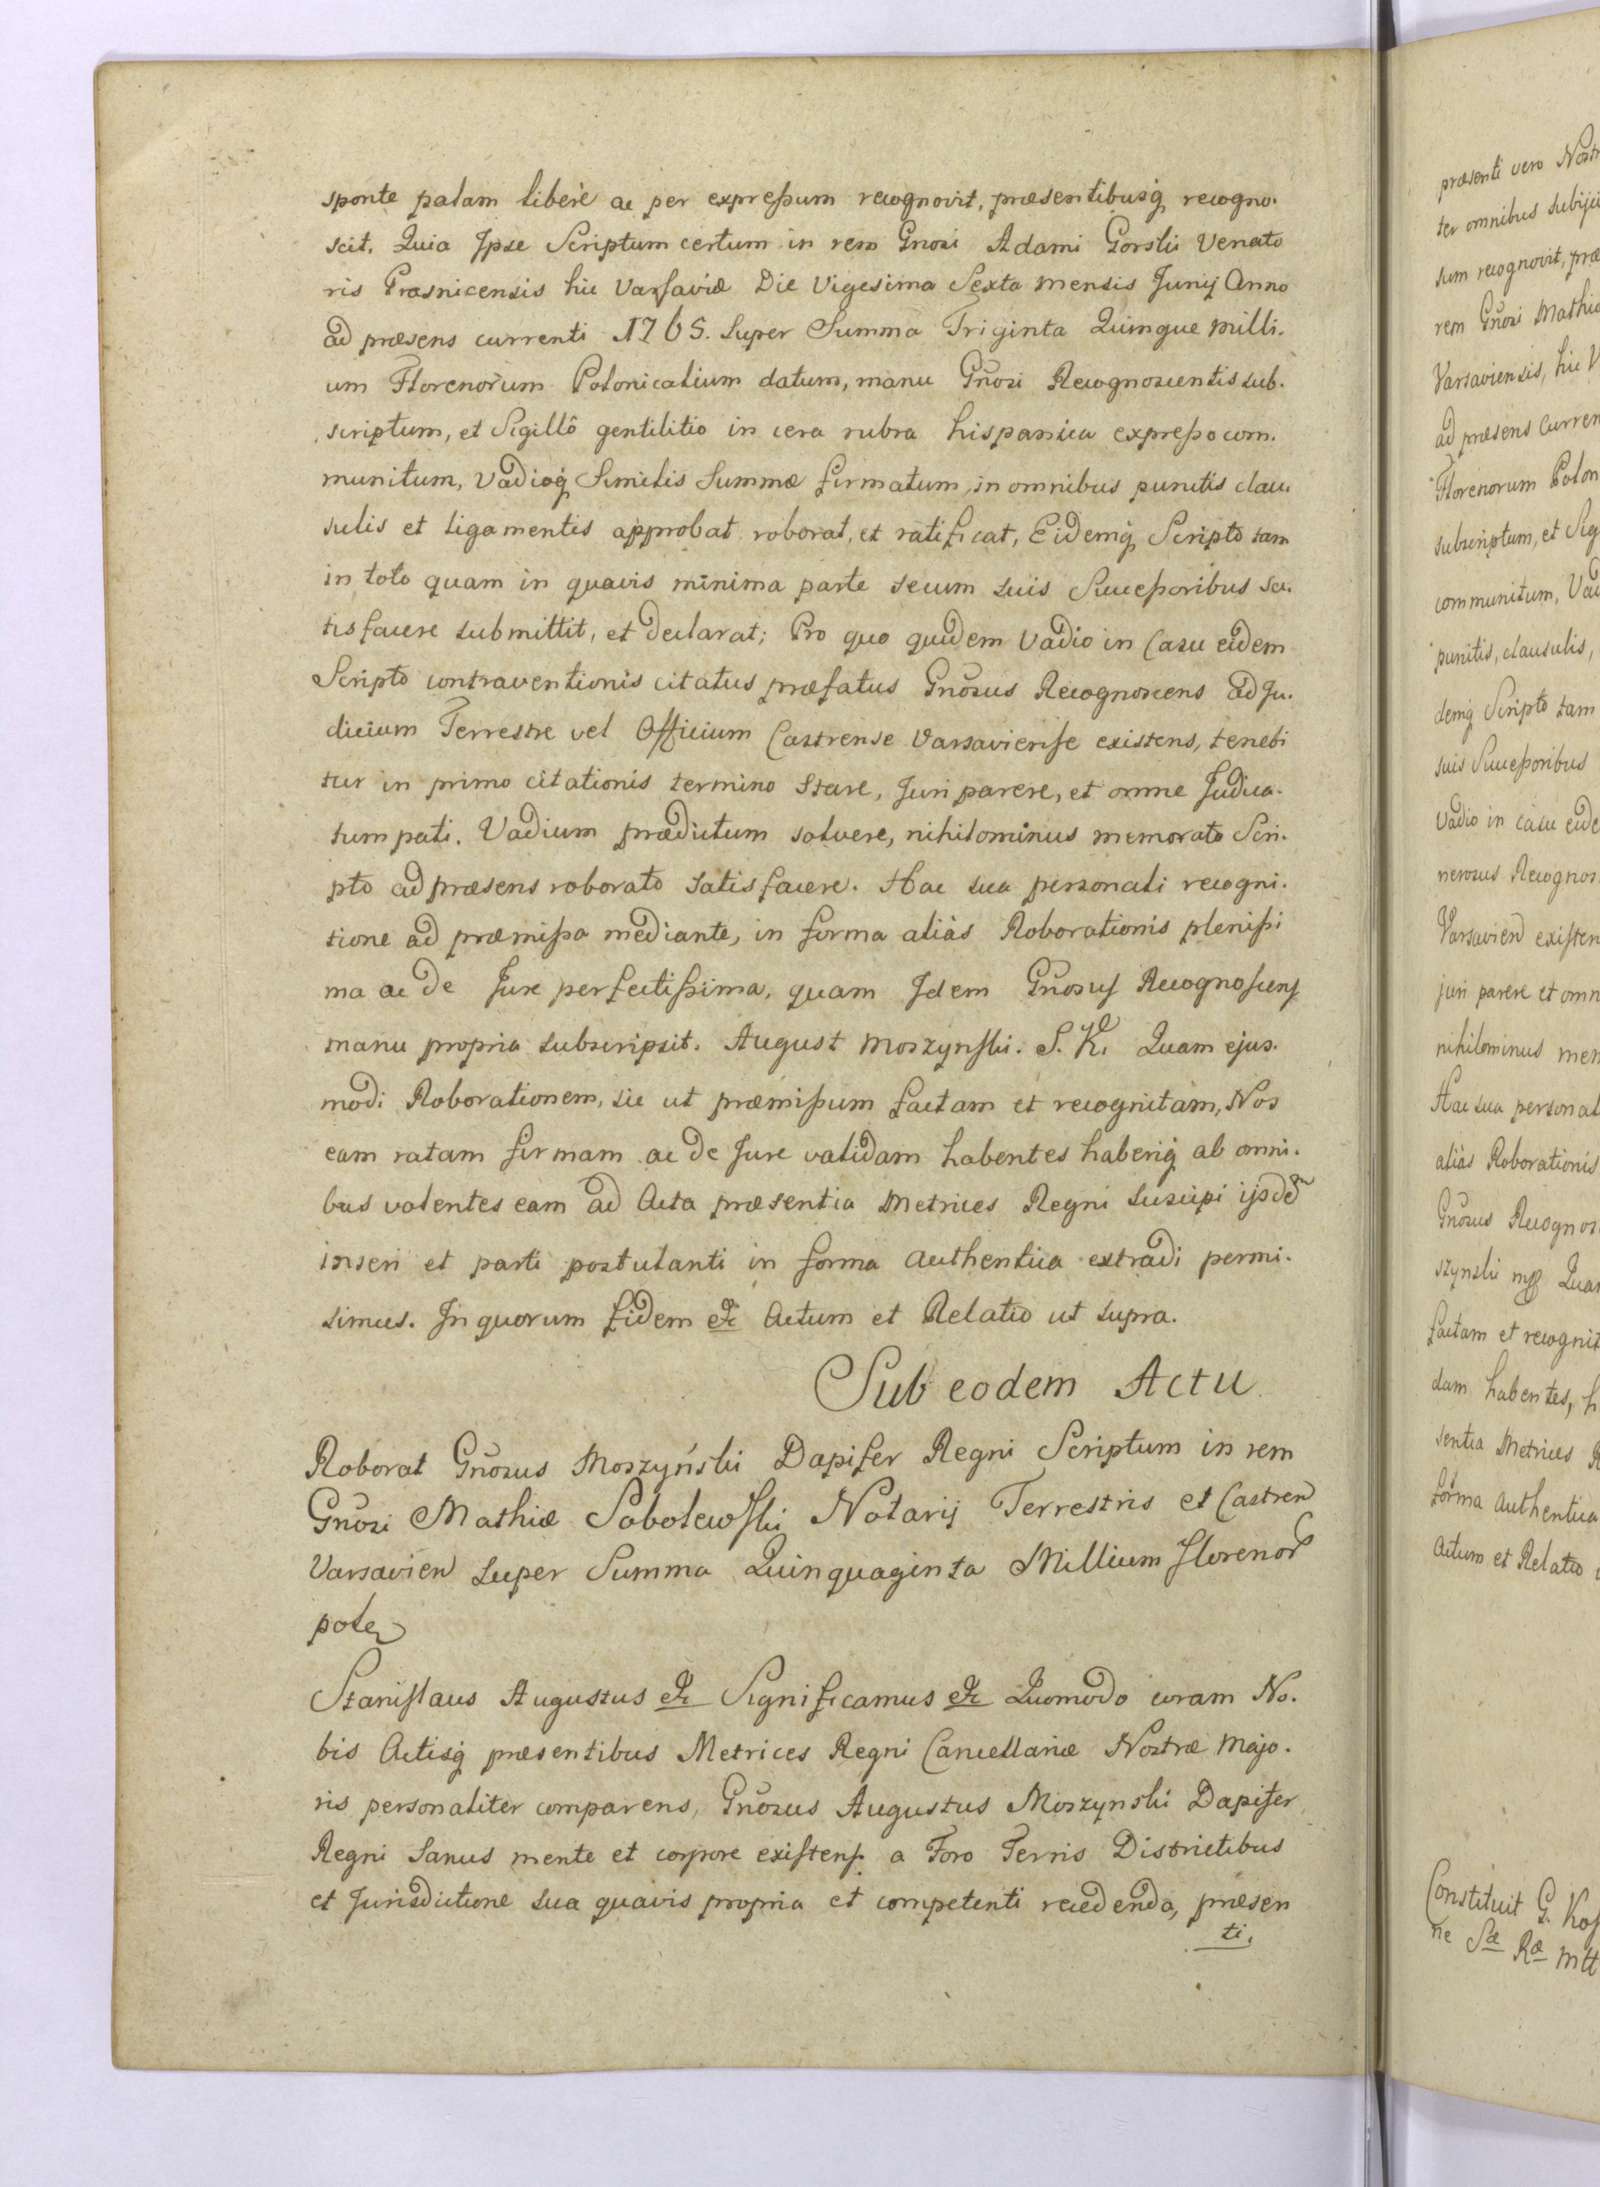 sponte palam liberè ac per expressum recognovit, præsentibusq́ recogno.
scit. Quia Ipse Scriptum certum in rem Gnosi Adami Gorski Venato
ris Prasnicensis hic Varsaviæ Die Vigesima Sexta mensis Junij Anno
ad præsens currenti 1765. super Summa Triginta Quinque milli.
um Florenorum Polonicalium datum, manu Gnosi Recognoscentis sub.
scriptum, et Sigillô gentilitio in cera rubra hispanica expresso com.
munitum, Vadioq́ Similis Summæ firmatum, in omnibus punctis clau.
sulis et ligamentis approbat roborat, et ratificat, Eidemq́ Scripto tam
in toto quam in quavis minima parte secum suis Successoribus sa.
tisfacere submittit, et declarat; Pro quo quidem Vadio in Casu eidem
Scripto contraventionis citatus præfatus Gnosus Recognoscens ad Ju.
dicium Terrestre vel Officium Castrense Varsaviense existens, tenebi
tur in primo citationis termino stare, Juri parere, et omne Judica.
tum pati. Vadium prædictum solvere, nihilominus memorato Scri.
pto ad præsens roborato satisfacere. Hac sua personali recogni.
tione ad præmissa mediante, in forma aliàs Roborationis plenissi
ma ac de Jure perfectissima, quam Idem Gnosus Recognoscens
manu propria subscripsit. August Moszynski. S. K. Quam ejus.
modi Roborationem, sic ut præmissum factam et recognitam, Nos
eam ratam firmam ac de Jure validam habentes haberiq́ ab omni.
bus volentes eam ad Acta præsentia Metrices Regni suscipi ijsdē
inseri et parti postulanti in forma authentica extradi permi.
simus. In quorum fidem &c Actum et Relatio ut supra.
Sub eodem Actu
Roborat Gnosus Moszyński Dapifer Regni Scriptum in rem
Gnosi Mathiæ Sobolewski Notarij Terrestris et Castren
Varsavien super Summa Quinquaginta Millium florenor
pol
Stanislaus Augustus &c Significamus &c Quomodo coram No.
bis Actisq́ præsentibus Metrices Regni Cancellariæ Nostræ Majo.
ris personaliter comparens, Gnosus Augustus Moszynski Dapifer
Regni Sanus mente et corpore existens a Foro Terris Districtibus
et Jurisdictione sua quavis propria et competenti recedendo, præsen
ti.
præsenti vero
ter omnibus
sum recognovit,
rem Gnosi
Varsaviensis, hic
ad præsens
Florenorum
subscriptum, et
communitum,
punctis, clausulis,
demq́ Scripto tam
suis Successoribus
Vadio in casu
nerosus
Varsavien
juri parere et
nihilominus
Hac sua
aliàs Roborationis
Gnosus
szynski mp
factam et
dam habentes,
sentia Metrices
forma Authentica
Actum et Relatio
Constituit G.
ne Sæ Ræ